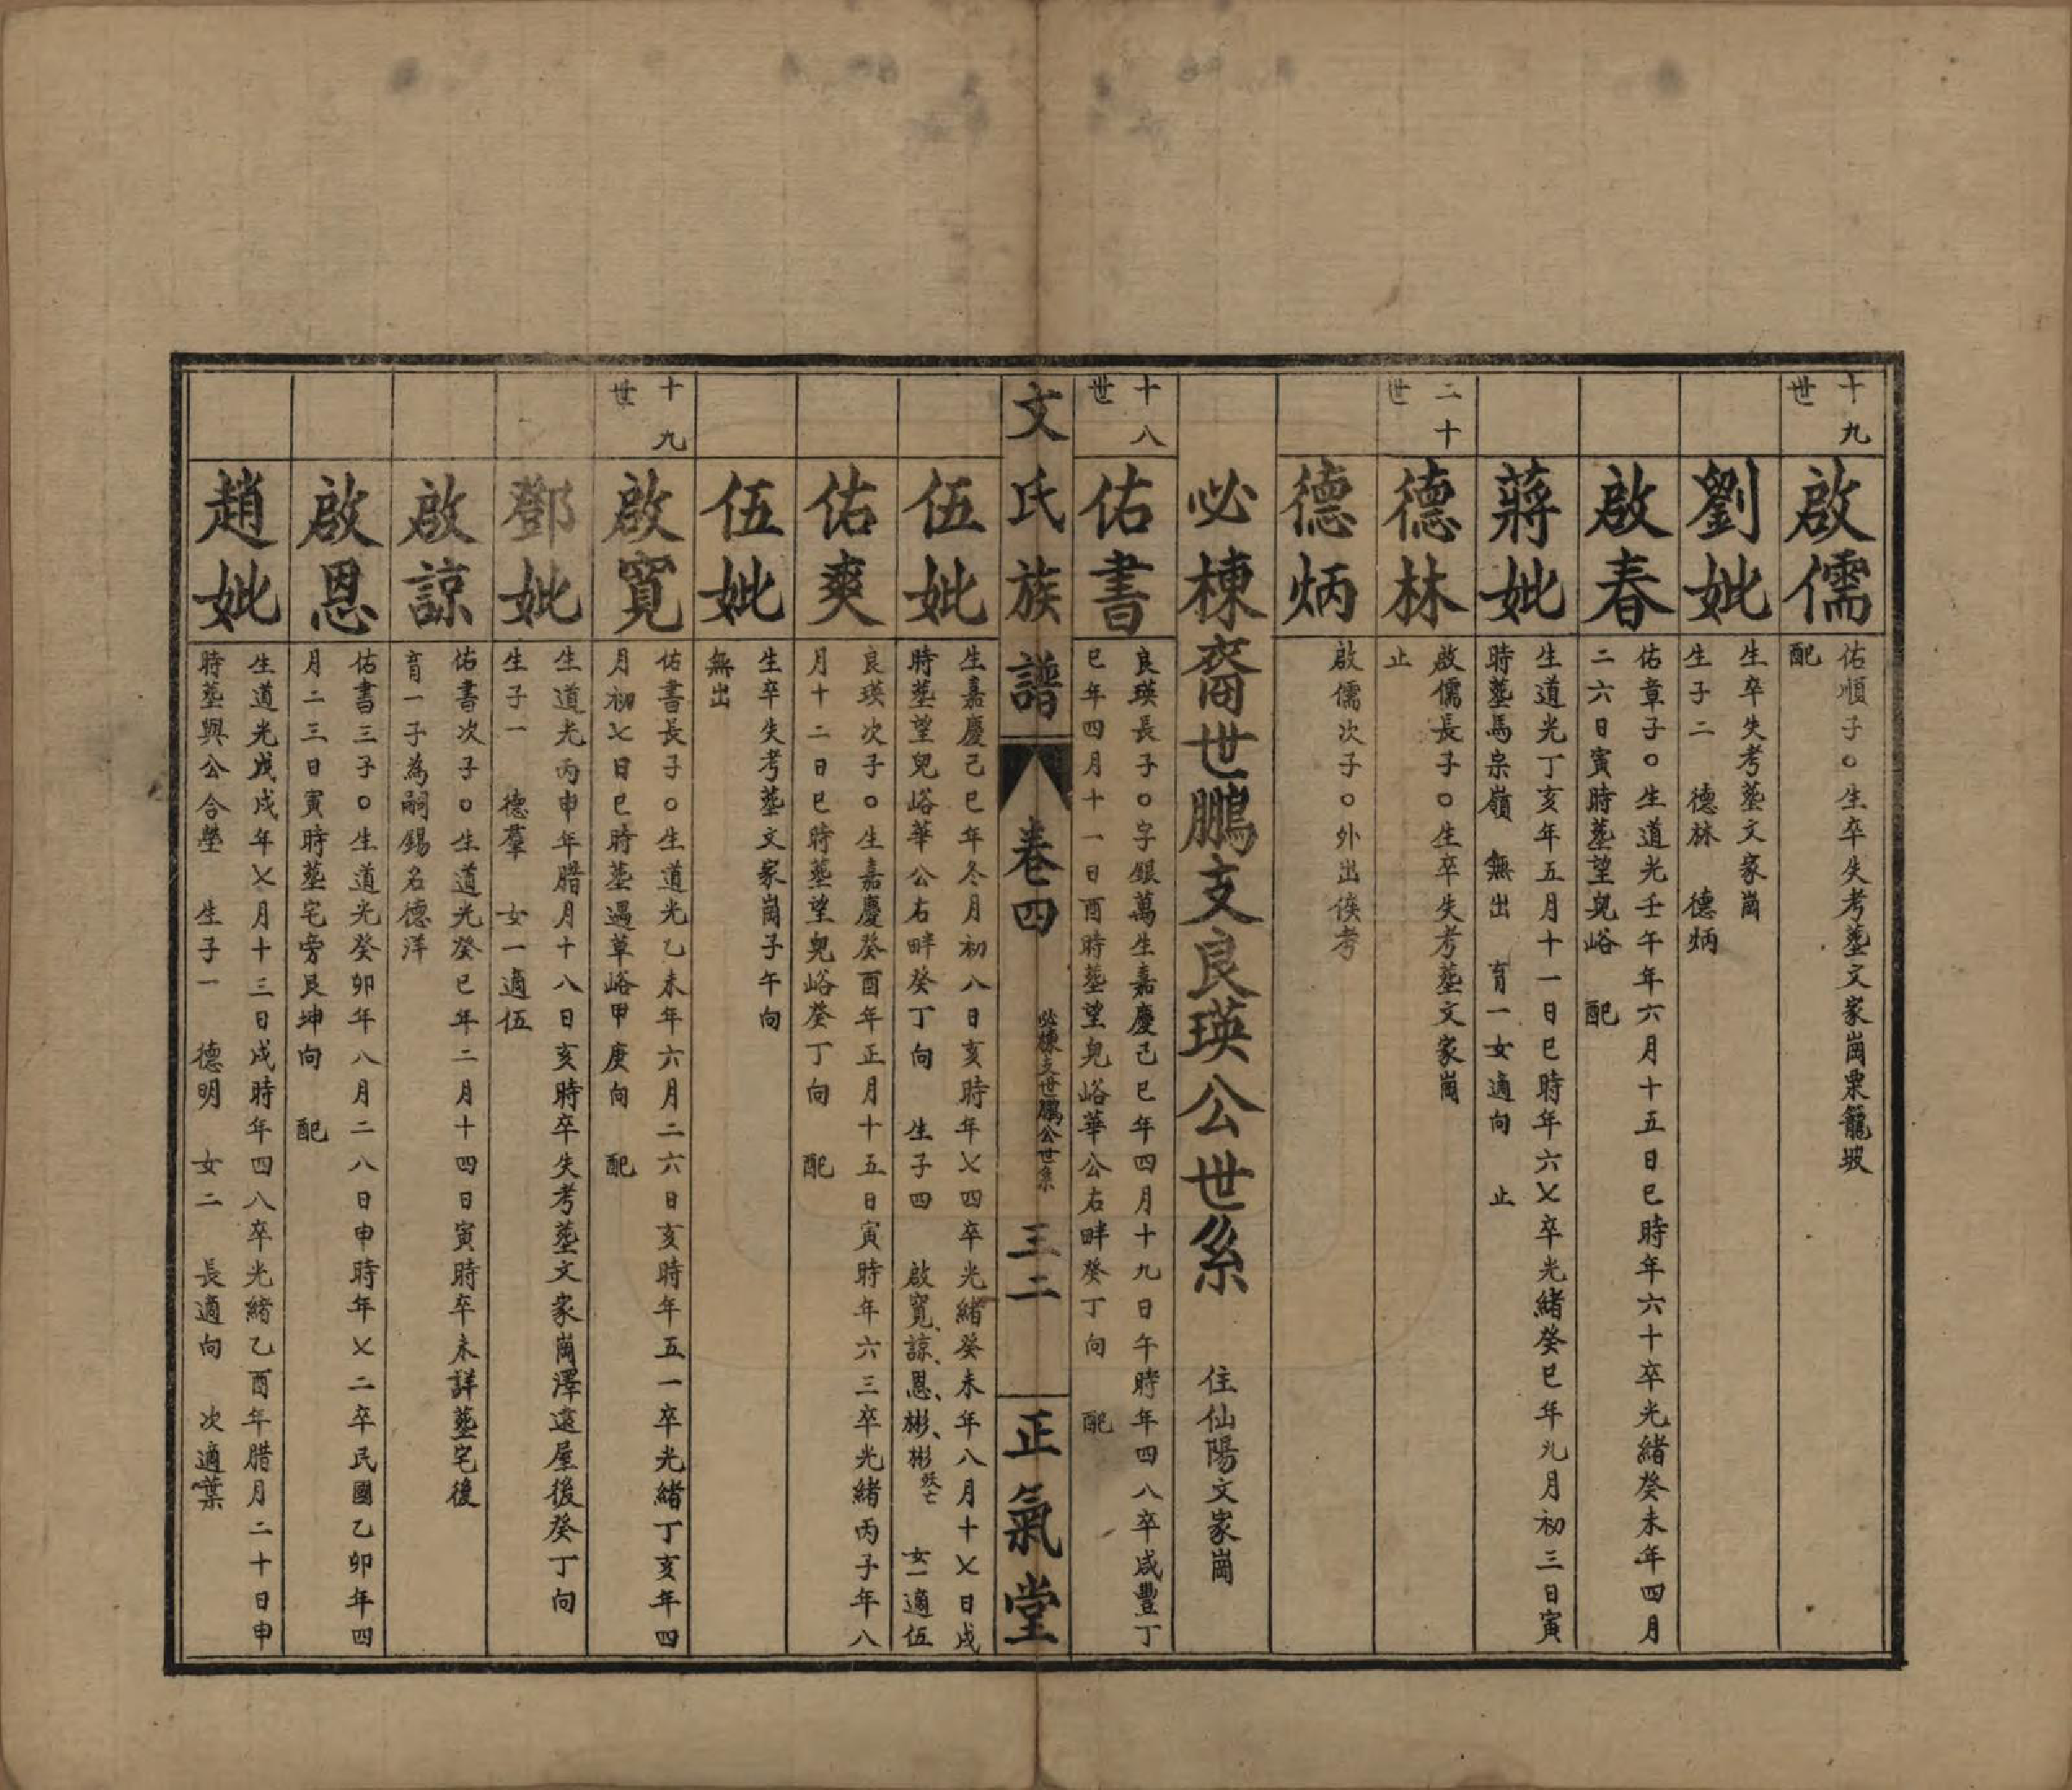 十九世
啟儒
佑順子○生卒失考塟文家崗栗籠坡
配
劉妣
生卒失考塟文家崗
生子二 德林 德炳
啟春
佑章子○生道光壬午年六月十五日巳時年六十卒光緒癸未年四月
二六日寅時塟望皃峪 配
蔣妣
生道光丁亥年五月十一日巳時年六乂卒光緒癸巳年九月初三日寅
時塟馬宗嶺 無出 育一女適向 止
二十世
德林
啟儒長子○生卒失考塟文家崗
止
德炳
啟儒次子○外出俟考
必棟裔世鵬支良瑛公世系 住仙陽文家崗
十八世
佑書
良瑛長子○字銀萬生嘉慶己巳年四月十九日午時年四八卒咸豐丁
巳年四月十一日酉時塟望皃峪華公右畔癸丁向 配
文氏族譜 卷四 必棟支世鵬公世系 三二 正氣堂
伍妣
生嘉慶己巳年冬月初八日亥時年乂四卒光緒癸未年八月十乂日戌
時塟望皃峪華公右畔癸丁向 生子四 啟寬、諒、恩、彬、彬殀亡 女一適伍
佑爽
良瑛次子○生嘉慶癸酉年正月十五日寅時年六三卒光緒丙子年八
月十二日巳時塟望皃峪癸丁向 配
伍妣
生卒失考塟文家崗子午向
無出
十九世
啟寬
佑書長子○生道光乙未年六月二六日亥時年五一卒光緒丁亥年四
月初乂日巳時塟過草峪甲庚向 配
鄧妣
生道光丙申年腊月十八日亥時卒失考塟文家崗澤遠屋後癸丁向
生子一 德羣 女一適伍
啟諒
佑書次子○生道光癸巳年二月十四日寅時卒未詳塟宅後
育一子為嗣錫名德洋
啟恩
佑書三子○生道光癸卯年八月二八日申時年乂二卒民國乙卯年四
月二三日寅時塟宅旁艮坤向 配
趙妣
生道光戊戌年乂月十三日戌時年四八卒光緒乙酉年腊月二十日申
時塟與公合塋 生子一 德明 女二 長適向 次適葉